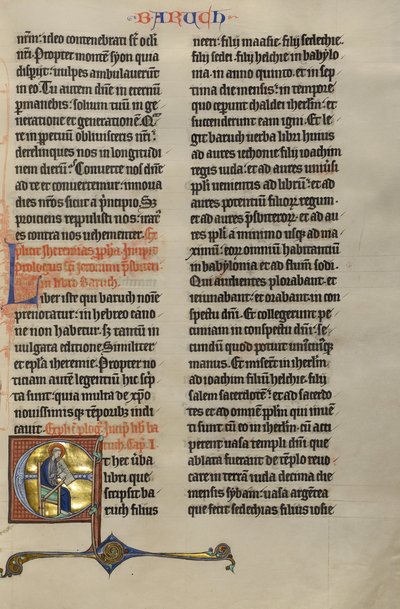 BARUCH
nr̄m: ideo contenebrati sī ocli
nr̄i. Propter montem syon quia
disp̄ijt: uulpes ambulauerūt
in eo. Tu autem dn̄e in eternū
permanebis: solium tuū in ge
neratione et generationem. Q̄re
in ꝑpetuū obliuisceris nr̄i:
derelinques nos in longitudi
nem dierū? Conuerte nos dn̄e
ad te et conuertemur: innoua
dies nr̄os sicut a principio. Sꝫ
proiciens repulisti nos: irat̄
es contra nos uehementer. Ex
plicit iheremias ꝓpha. Incipit
prologus sc̄i ieronimi p̄sbiteri
in libro baruch.
Liber iste qui baruch noīe
prenotatur: in hebreo cāno
ne non habetur: sꝫ tantū in
uulgata editione. Similiter
et ep̄la iheremie. Propter no
ticiam autē legentiū hic sc̄p
ta sunt: quia multa de xp̄o
nouissimisqꝫ tēporibꝫ indi
cant. Expl̄i ꝓloḡ. Incip̄ lib̄ ba
ruch. Cap̄. I.
Et hec ūba
libri que
scripsit ba
ruch filius
neeri: filij maasie: filij sedechie:
filij sedei: filij helchie in babylo
nia. in anno quinto. et in sep
tima die mensis: in tempore
quo ceperunt chaldei ihrl̄m: et
succenderunt eam igni. Et le
git baruch uerba libri huius
ad aures iechonie filij ioachim
regis iuda: et ad aures uniūsi
ppl̄i uenientis ad librū: et ad
aures potentiū filioꝝ regum:
et ad aures p̄sbiteroꝝ: et ad au
res ppl̄i a minimo usqꝫ ad ma
ximū: eoꝝ omniū habitantiū
in babylonia et ad flum̄ sodi.
Qui audientes plorabant: et
ieiunabant: et orabant in con
spectu dn̄i. Et collegerunt pe
cuniam in conspectu dn̄i: se
cundū quod potuit uniūcuiusqꝫ
manus. Et miserūt in ihrl̄m
ad ioachim filiū helchie: filij
salem sacerdotē: et ad sacerdo
tes et ad omnem ppl̄m qui inuē
ti sunt cū eo in ihrl̄m: cū acci
perent uasa templi dn̄i que
ablata fuerant de tēplo reuo
care in terrā iuda: decima die
mensis syban: uasa argētea
que fecit sedechias filius iosie